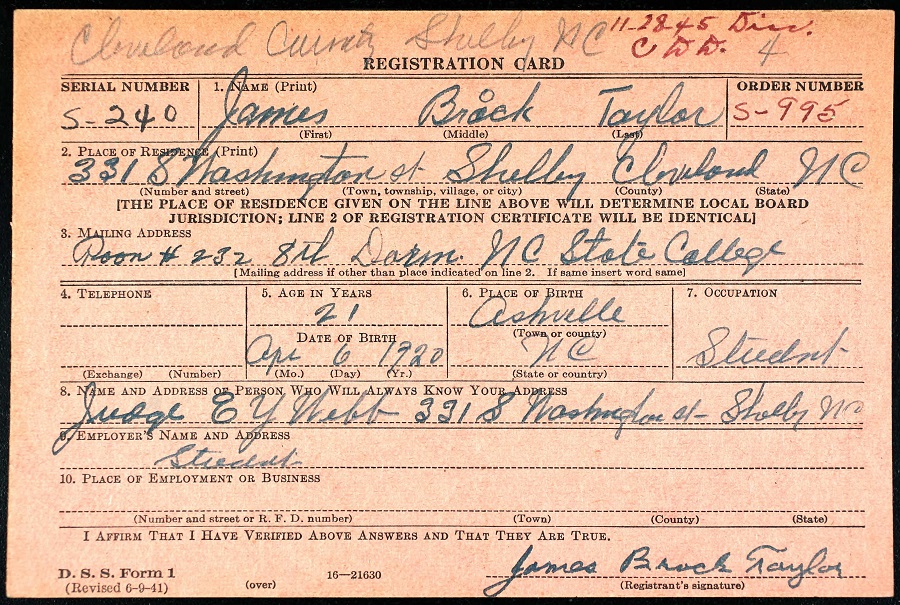 Cleveland County Shelby NC 11-28-45 Dis.
C D D. 4
REGISTRATION CARD
SERIAL NUMBER 1. NAME (Print) ORDER NUMBER
S-240 James Brock Taylor S-995
(First) (Middle) (Last)
2. PLACE OF RESIDENCE (Print)
331 S Washington st Shelby Cleveland NC
(Number and street) (Town, township, village, or city) (County) (State)
[THE PLACE OF RESIDENCE GIVEN ON THE LINE ABOVE WILL DETERMINE LOCAL BOARD
JURISDICTION; LINE 2 OF REGISTRATION CERTIFICATE WILL BE IDENTICAL]
3. MAILING ADDRESS
Room # 232 8th Dorm. NC State College
[Mailing address if other than place indicated on line 2. If same insert word same]
4. TELEPHONE 5. AGE IN YEARS 6. PLACE OF BIRTH 7. OCCUPATION
21 Ashville
DATE OF BIRTH (Town or county)
Apr 6 1920 NC Student
(Exchange) (Number) (Mo.) (Day) (Yr.) (State or country)
8. NAME AND ADDRESS OF PERSON WHO WILL ALWAYS KNOW YOUR ADDRESS
Judge E Y Webb 331 S Washington st- Shelby NC
9. EMPLOYER'S NAME AND ADDRESS
Student
10. PLACE OF EMPLOYMENT OR BUSINESS
(Number and street or R. F. D. number) (Town) (County) (State)
I AFFIRM THAT I HAVE VERIFIED ABOVE ANSWERS AND THAT THEY ARE TRUE.
James Brock Taylor
D. S. S. Form 1 (over) 16—21630 (Registrant's signature)
(Revised 6-9-41)